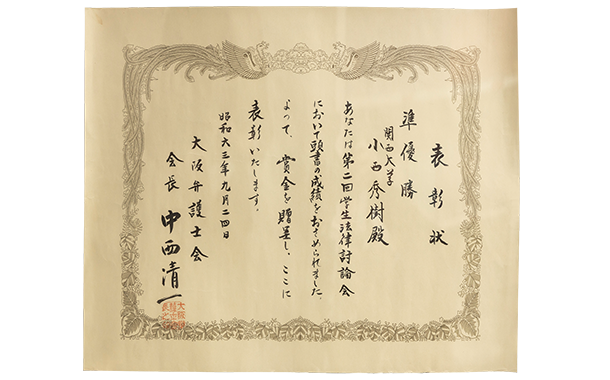 表彰状
準優勝
関西大学
小西秀樹殿
あなたは第二回学生法律討論会
において頭書の成績をおさめられました。
よって、賞金を贈呈し、ここに
表彰いたします。
昭和六三年九月二四日
大阪弁護士会
会長 中西清一